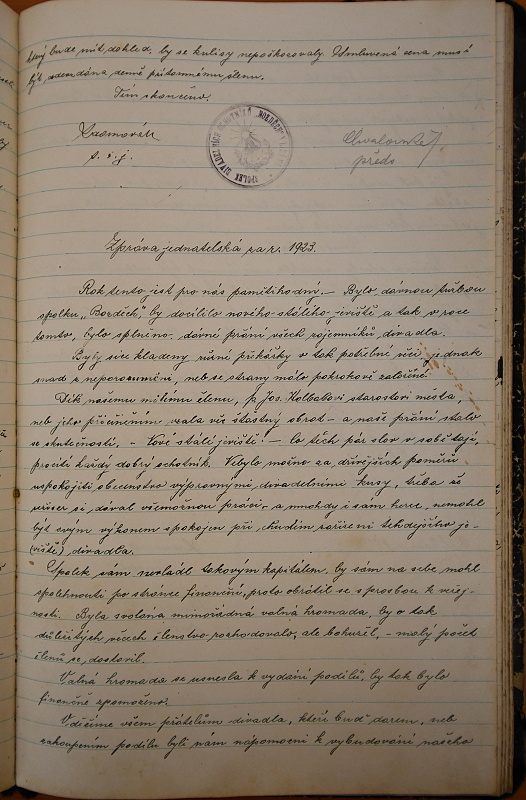 který bude mít dohled, by se kulisy nepoškozovaly. Umluvená cena musí
býti odevzdána denně přítomnému členu.
Tím skončeno.
t. č. j.
Chvalovský J.
předs
SPOLEK DIVADELNÍCH OCHOTNÍKŮ „BOZDĚCH"
Zpráva jednatelská za r. 1923.
Rok tento jest pro nás pamětihodný. – Bylo dávnou tužbou
spolku „Bozděch", by docílilo nového stálého jeviště a tak v roce
tomto, bylo splněno dávné přání všech zájemníků divadla.
Byly sice kladeny různé překážky v tak potřebné věci, jednak
snad z neporozumění, neb se strany málo pokrokově založené.
Dík našemu milému členu, p. Jos. Holbatovi starostovi města,
neb jeho přičiněním vzala věc šťastný obrat – a naše přání stalo
se skutečností. – Nové stálé jeviště! – Co těch pár slov v sobě tají,
procítí každý dobrý ochotník. Nebylo možno za dřívějších poměrů
uspokojiti obecenstvo výpravnými divadelními kusy, třeba že
režiser si dával všemožnou práci, a mnohdy i sám herec, nemohl
býti svým výkonem spokojen při chudém zařízení tehdejšího je-
(viště) divadla.
Spolek sám nevládl takovým kapitálem, by sám na sebe mohl
spolehnouti po stránce finanční, proto obrátil se s prosbou k veřej-
nosti. Byla svolána mimořádná valná hromada, by o tak
důležitých věcech členstvo rozhodovalo, ale bohužel, – malý počet
členů se dostavil.
Valná hromada se usnesla k vydání podílů, by tak bylo
finančně zpomoženo.
Vděčíme všem přátelům divadla, kteří buď darem, neb
zakoupením podílu byli nám nápomocni k vybudování našeho